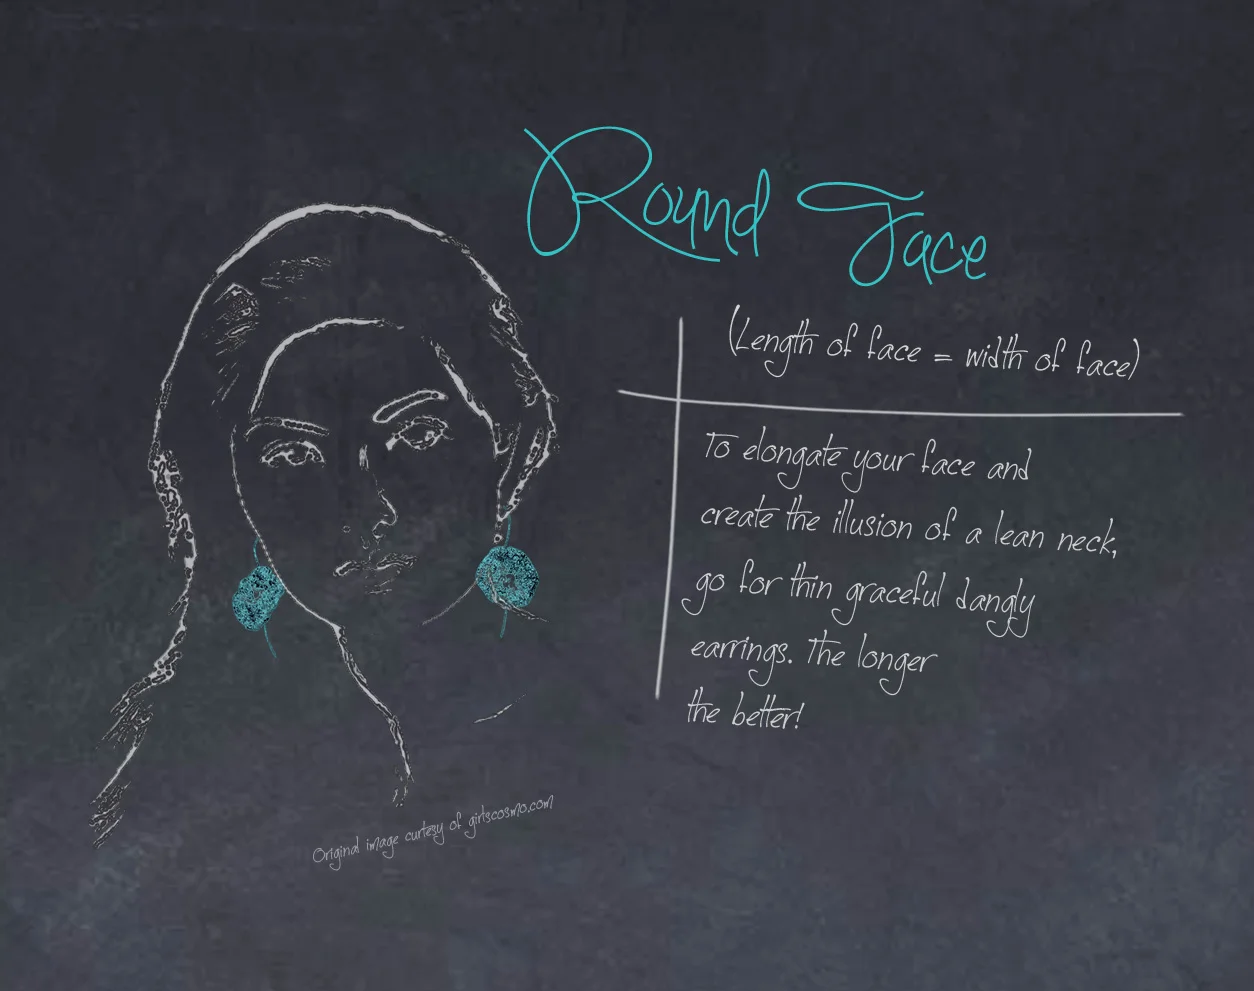 Round Face
(Length of face = width of face)
To elongate your face and
create the illusion of a lean neck,
go for thin graceful dangly
earrings. The longer
the better!
Original image curtesy of girlscosmo.com